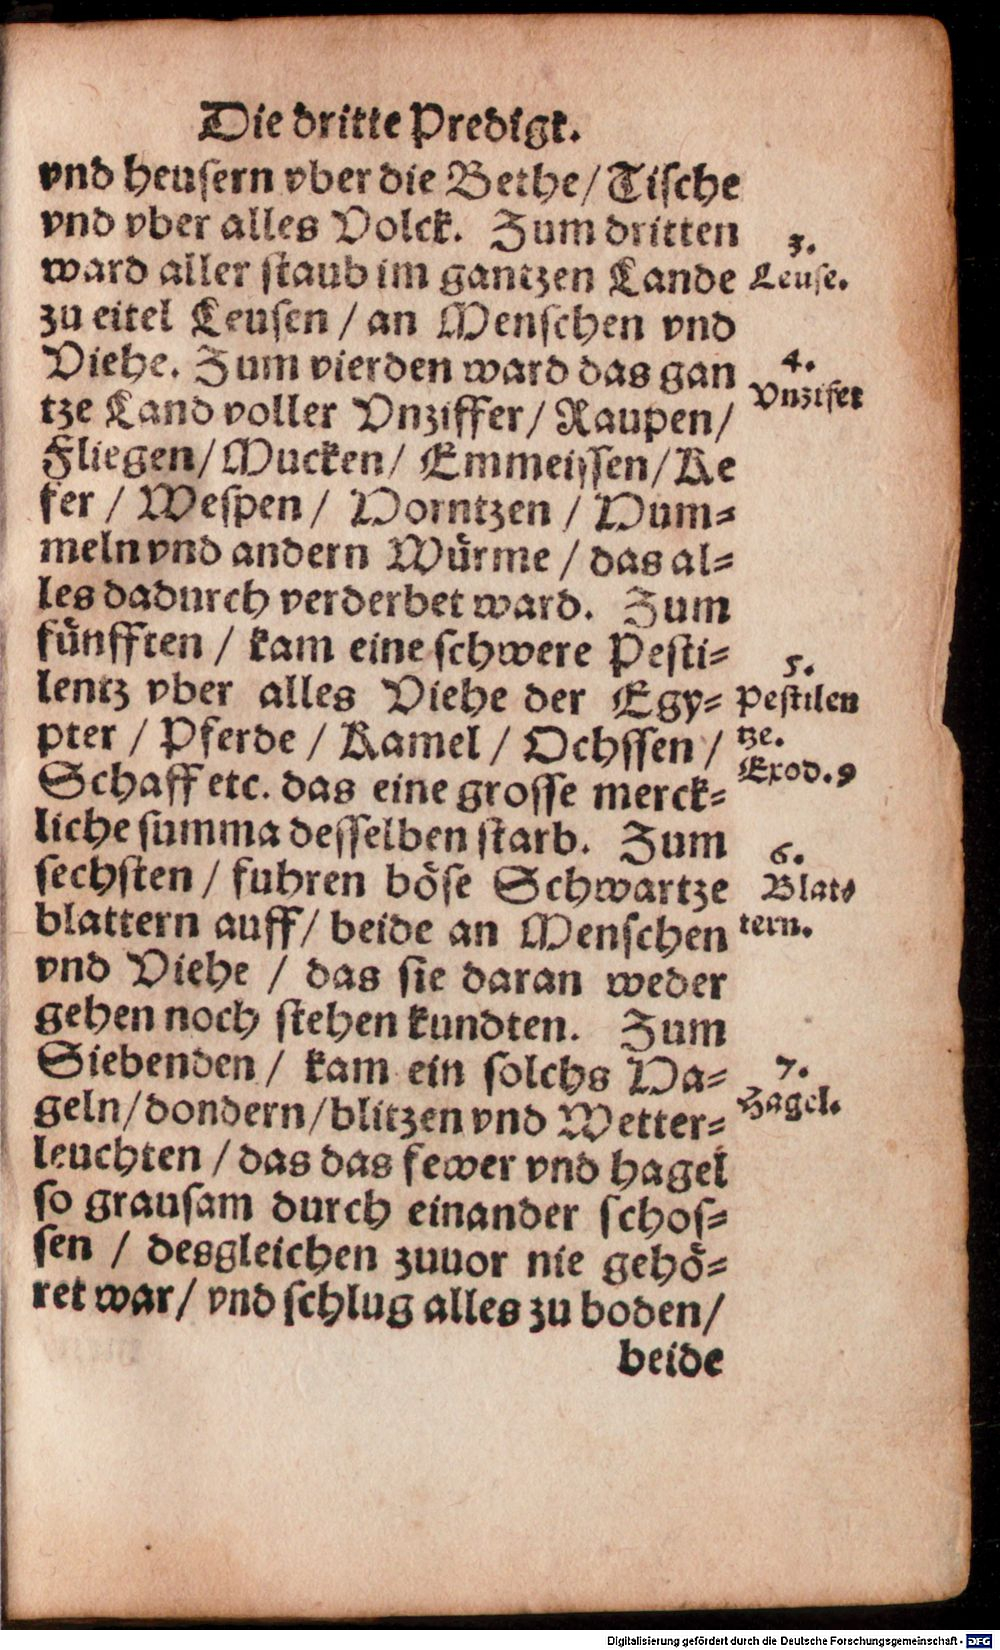 Die dritte Predigt.
vnd heusern vber die Bethe/ Tische
vnd vber alles Volck. Zum dritten
ward aller staub im gantzen Lande
zu eitel Leusen / an Menschen vnd
Viehe. Zum vierden ward das gan
tze Land voller Vnziffer/ Raupen/
Fliegen/ Mucken/ Emmeissen/ Ke
fer / Wespen / Horntzen / Hum-
meln vnd andern Würme / das al-
les dadurch verderbet ward. Zum
fünfften / kam eine schwere Pesti-
lentz vber alles Viehe der Egy-
pter / Pferde / Kamel / Ochssen /
Schaff etc. das eine grosse merck-
liche summa desselben starb. Zum
sechsten / fuhren böse Schwartze
blattern auff/ beide an Menschen
vnd Viehe / das sie daran weder
gehen noch stehen kundten. Zum
Siebenden / kam ein solchs Ha-
geln/ dondern/ blitzen vnd Wetter-
leuchten / das das fewer vnd hagel
so grausam durch einander schos-
sen / desgleichen zuuor nie gehö-
ret war/ vnd schlug alles zu boden/
beide
3.
Leuse.
4.
Vnzifer
5.
Pestilen
tze.
Exod. 9
6.
Blat-
tern.
7.
Hagel.
Digitalisierung gefördert durch die Deutsche Forschungsgemeinschaft - DFG